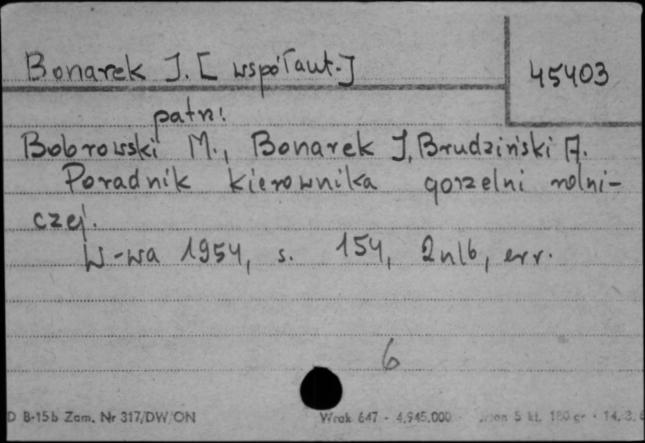 Bonarek J. [współaut.]
45403
patrz:
Bobrowski M., Bonarek J, Brudziński A.
Poradnik kierownika gorzelni rolni-
czej.
W-wa 1954, s. 154, 2nlb, err.
6
D B-15b Zam. Nr 317/DW/ON
Wrok 647 - 4.945.000 5 kl. 180 gr - 14.3.